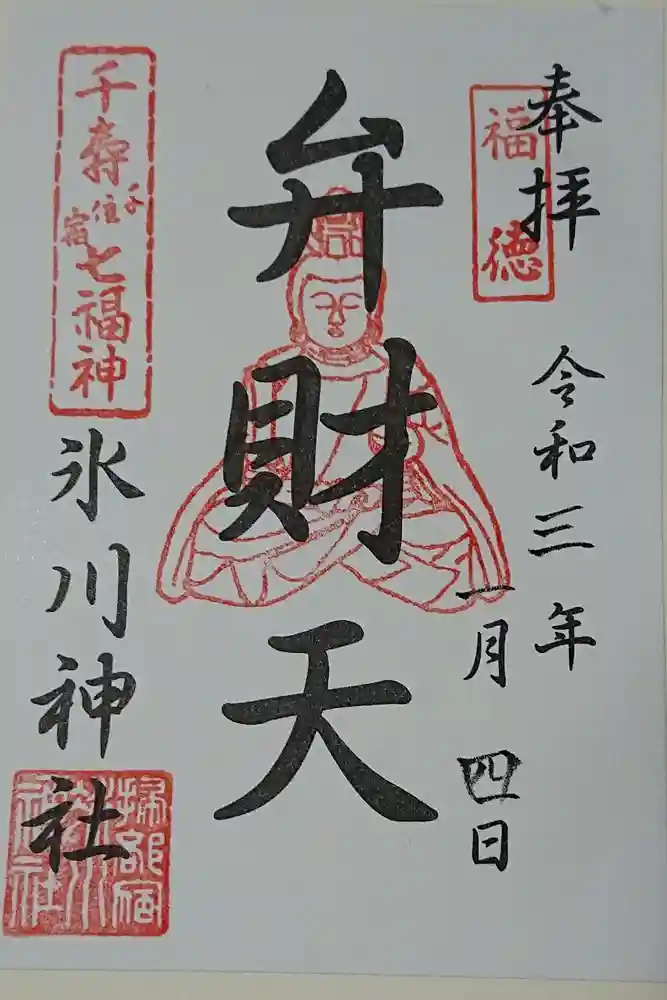 奉拝
福徳
令和三年
一月四日
弁財天
千寿七福神
千住宿
氷川神社
掃部宿
氷川
神社